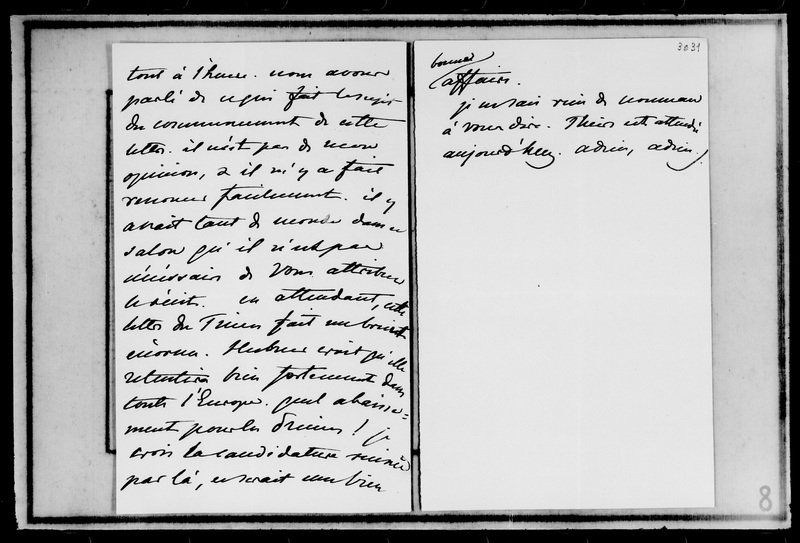 tout à l'heure. nous avons
parlé de ce qui fait le sujet
du commencement de cette
lettre. il n'est pas de mon
opinion, & il m'y a fait
renoncer facilement. il y
avait tant de monde dans ce
salon qu'il n'est pas
nécessaire de vous attribuer
le récit. en attendant, cette
lettre du Times fait un bruit
énorme. Hubner croit qu'elle
retentira bien fortement dans
toute l'Europe. quel abaisse=
ment pour les Princes! je
crois la candidature ruinée
par là, ce serait une bien
3031
bonne
affaire.
je ne sais rien de nouveau
à vous dire. Thiers est attendu
aujourd'hui. adieu, adieu.
8